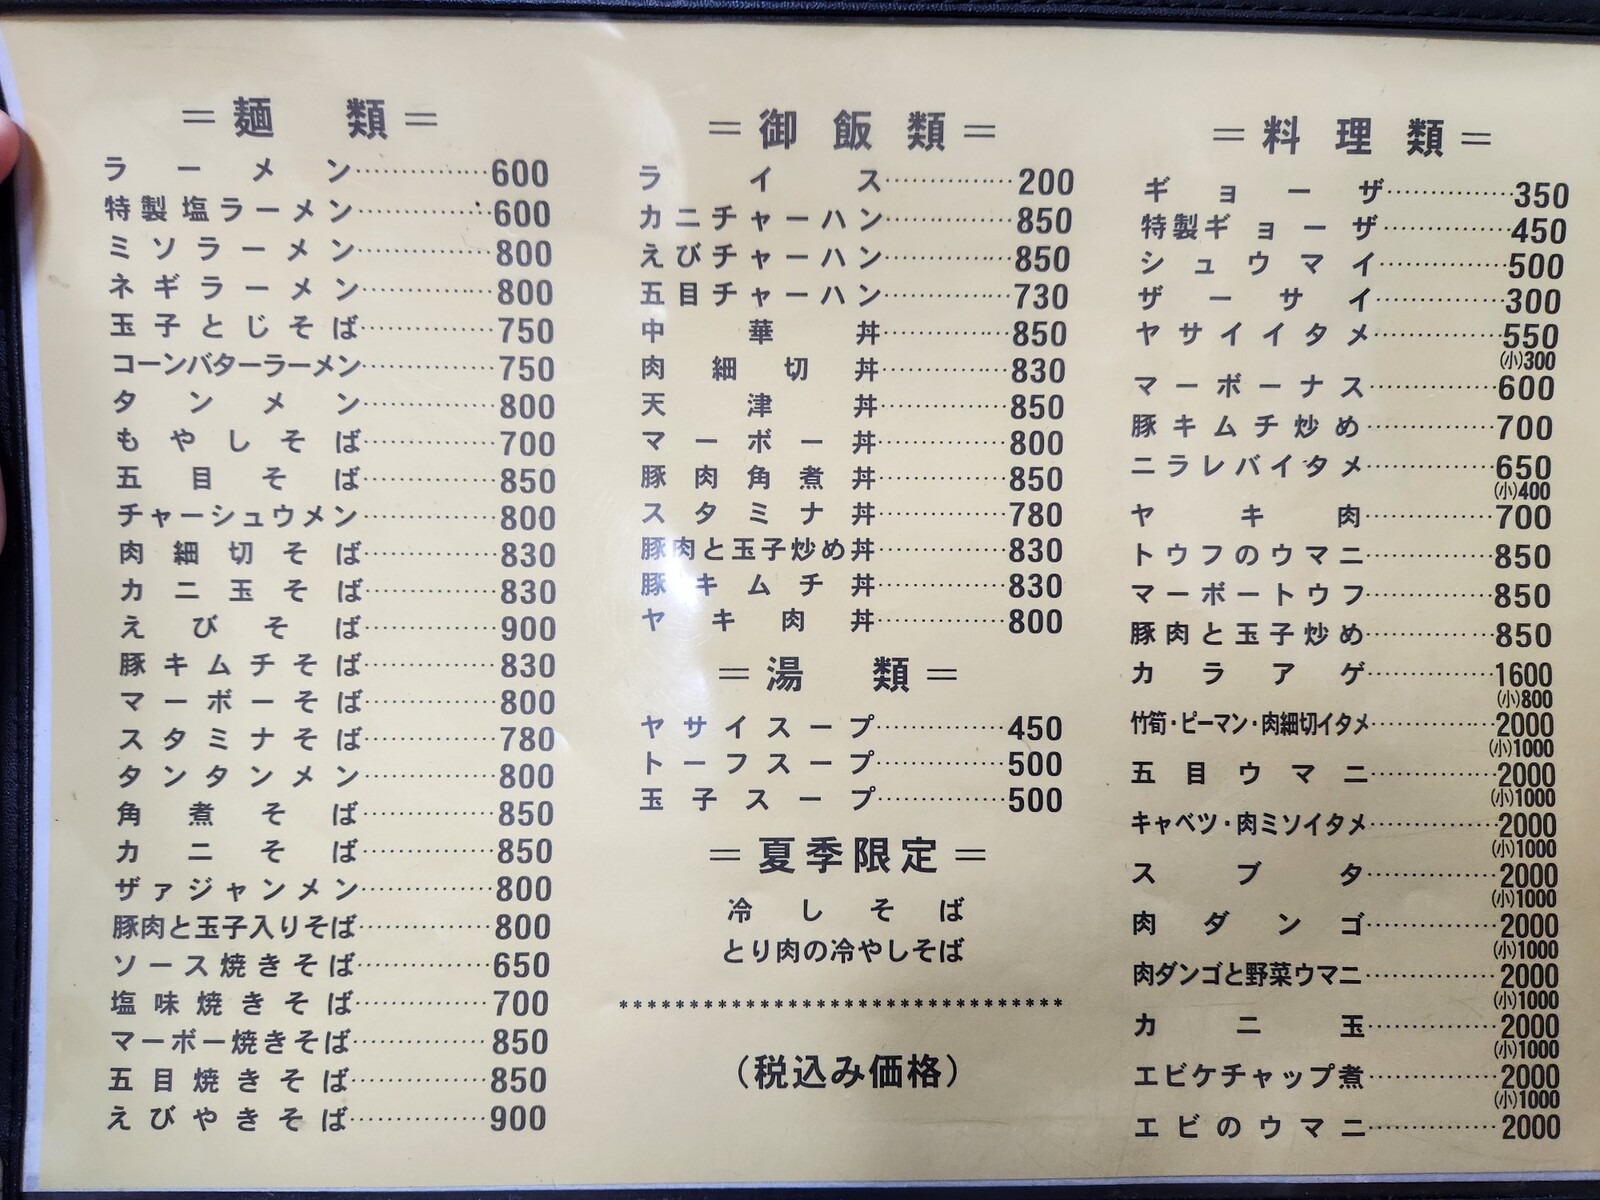 ＝麺類＝
ラーメン……………600
特製塩ラーメン……………600
ミソラーメン……………800
ネギラーメン……………800
玉子とじそば……………750
コーンバターラーメン……………750
タンメン……………800
もやしそば……………700
五目そば……………850
チャーシュウメン……………800
肉細切そば……………830
カニ玉そば……………830
えびそば……………900
豚キムチそば……………830
マーボーそば……………800
スタミナそば……………780
タンタンメン……………800
角煮そば……………850
カニそば……………850
ザァジャンメン……………800
豚肉と玉子入りそば……………800
ソース焼きそば……………650
塩味焼きそば……………700
マーボー焼きそば……………850
五目焼きそば……………850
えびやきそば……………900
＝御飯類＝
ライス……………200
カニチャーハン……………850
えびチャーハン……………850
五目チャーハン……………730
中華丼……………850
肉細切丼……………830
天津丼……………850
マーボー丼……………800
豚肉角煮丼……………850
スタミナ丼……………780
豚肉と玉子炒め丼……………830
豚キムチ丼……………830
ヤキ肉丼……………800
＝湯類＝
ヤサイスープ……………450
トーフスープ……………500
玉子スープ……………500
＝夏季限定＝
冷しそば
とり肉の冷やしそば
********************************
（税込み価格）
＝料理類＝
ギョーザ……………350
特製ギョーザ……………450
シュウマイ……………500
ザーサイ……………300
ヤサイイタメ……………550
(小)300
マーボーナス……………600
豚キムチ炒め……………700
ニラレバイタメ……………650
(小)400
ヤキ肉……………700
トウフのウマニ……………850
マーボートウフ……………850
豚肉と玉子炒め……………850
カラアゲ……………1600
(小)800
竹筍・ピーマン・肉細切イタメ……………2000
(小)1000
五目ウマニ……………2000
(小)1000
キャベツ・肉ミソイタメ……………2000
(小)1000
スブタ……………2000
(小)1000
肉ダンゴ……………2000
(小)1000
肉ダンゴと野菜ウマニ……………2000
(小)1000
カニ玉……………2000
(小)1000
エビケチャップ煮……………2000
(小)1000
エビのウマニ……………2000